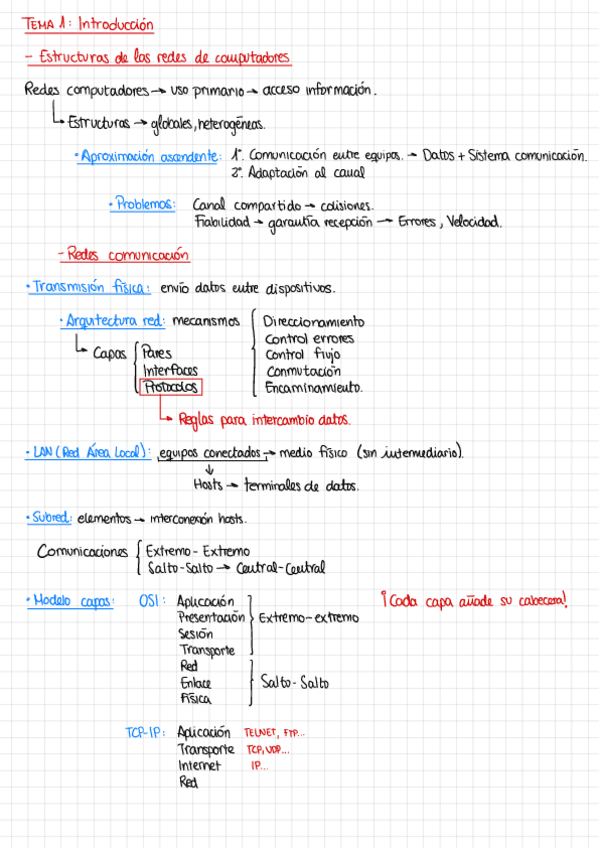 TEMA 1: Introducción
- Estructuras de las redes de computadores
Redes computadores → uso primario → acceso información.
Estructuras → globales, heterogéneas.
• Aproximación ascendente: 1º. Comunicación entre equipos. → Datos + Sistema comunicación.
2º. Adaptación al canal
• Problemas: Canal compartido → colisiones.
Fiabilidad → garantía recepción → Errores, Velocidad.
- Redes comunicación
• Transmisión física: envío datos entre dispositivos.
• Arquitectura red: mecanismos { Direccionamiento
Control errores
Capas { Pares Control flujo
Interfaces Conmutación
Protocolos Encaminamiento.
→ Reglas para intercambio datos.
• LAN (Red Área Local): equipos conectados → medio físico (sin intermediario).
↓
Hosts → terminales de datos.
• Subred: elementos → interconexión hosts.
Comunicaciones { Extremo - Extremo
Salto - Salto → Central - Central
• Modelo capas: OSI: Aplicación ¡Cada capa añade su cabecera!
Presentación } Extremo - extremo
Sesión
Transporte
Red
Enlace } Salto - Salto
Física
TCP-IP: Aplicación TELNET, FTP...
Transporte TCP, UDP...
Internet IP...
Red